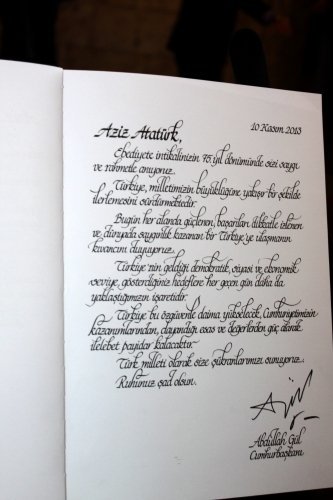 10 Kasım 2013
Aziz Atatürk,
Ebediyete intikalinizin 75'yıl dönümünde sizi saygı
ve rahmetle anıyoruz.
Türkiye, milletimizin büyüklüğüne yakışır bir şekilde
ilerlemesini sürdürmektedir.
Bugün her alanda güçlenen, başarıları dikkatle izlenen
ve dünyada saygınlık kazanan bir Türkiye'ye ulaşmanın
kıvancını duyuyoruz.
Türkiye'nin geldiği demokratik, siyasi ve ekonomik
seviye, gösterdiğiniz hedeflere her geçen gün daha da
yaklaştığımızın işaretidir.
Türkiye bu özgüvenle daima yükselecek, Cumhuriyetimizin
kazanımlarından, dayandığı esas ve değerlerden güç alarak
ilelebet payidar kalacaktır.
Türk milleti olarak size şükranlarımızı sunuyoruz.
Ruhunuz şad olsun.
Abdullah Gül
Cumhurbaşkanı